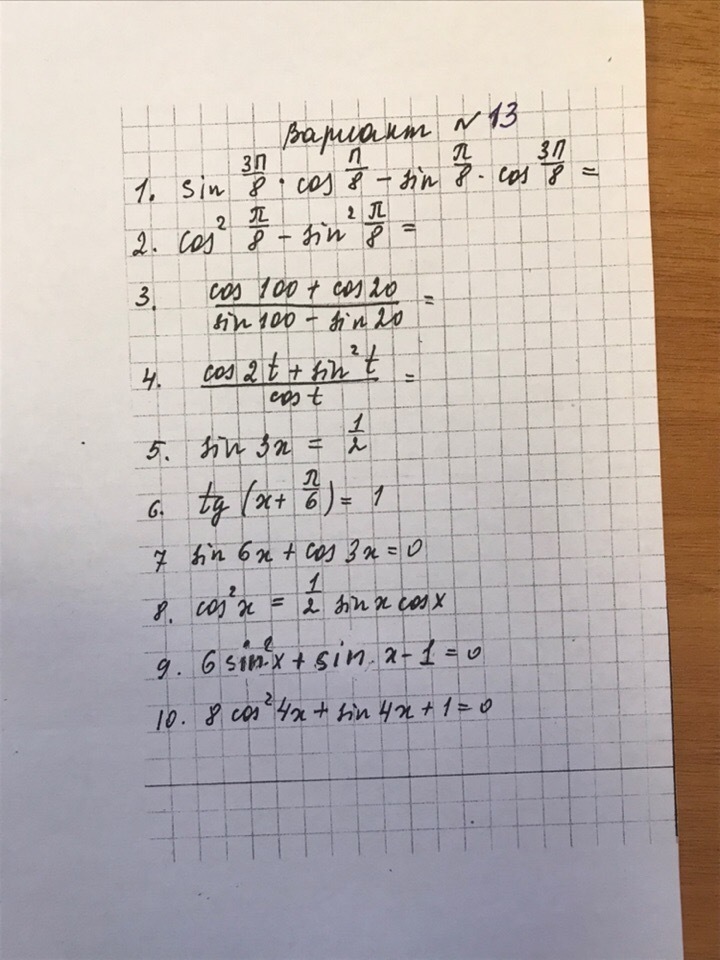 Вариант № 13
1. sin 3π/8 · cos π/8 − sin π/8 · cos 3π/8 =
2. cos² π/8 − sin² π/8 =
3. (cos 100 + cos 20)/(sin 100 − sin 20) =
4. (cos 2t + sin² t)/(cos t) =
5. sin 3x = 1/2
6. tg (x + π/6) = 1
7 sin 6x + cos 3x = 0
8. cos² x = 1/2 sin x cos x
9. 6 sin² x + sin x − 1 = 0
10. 8 cos² 4x + sin 4x + 1 = 0